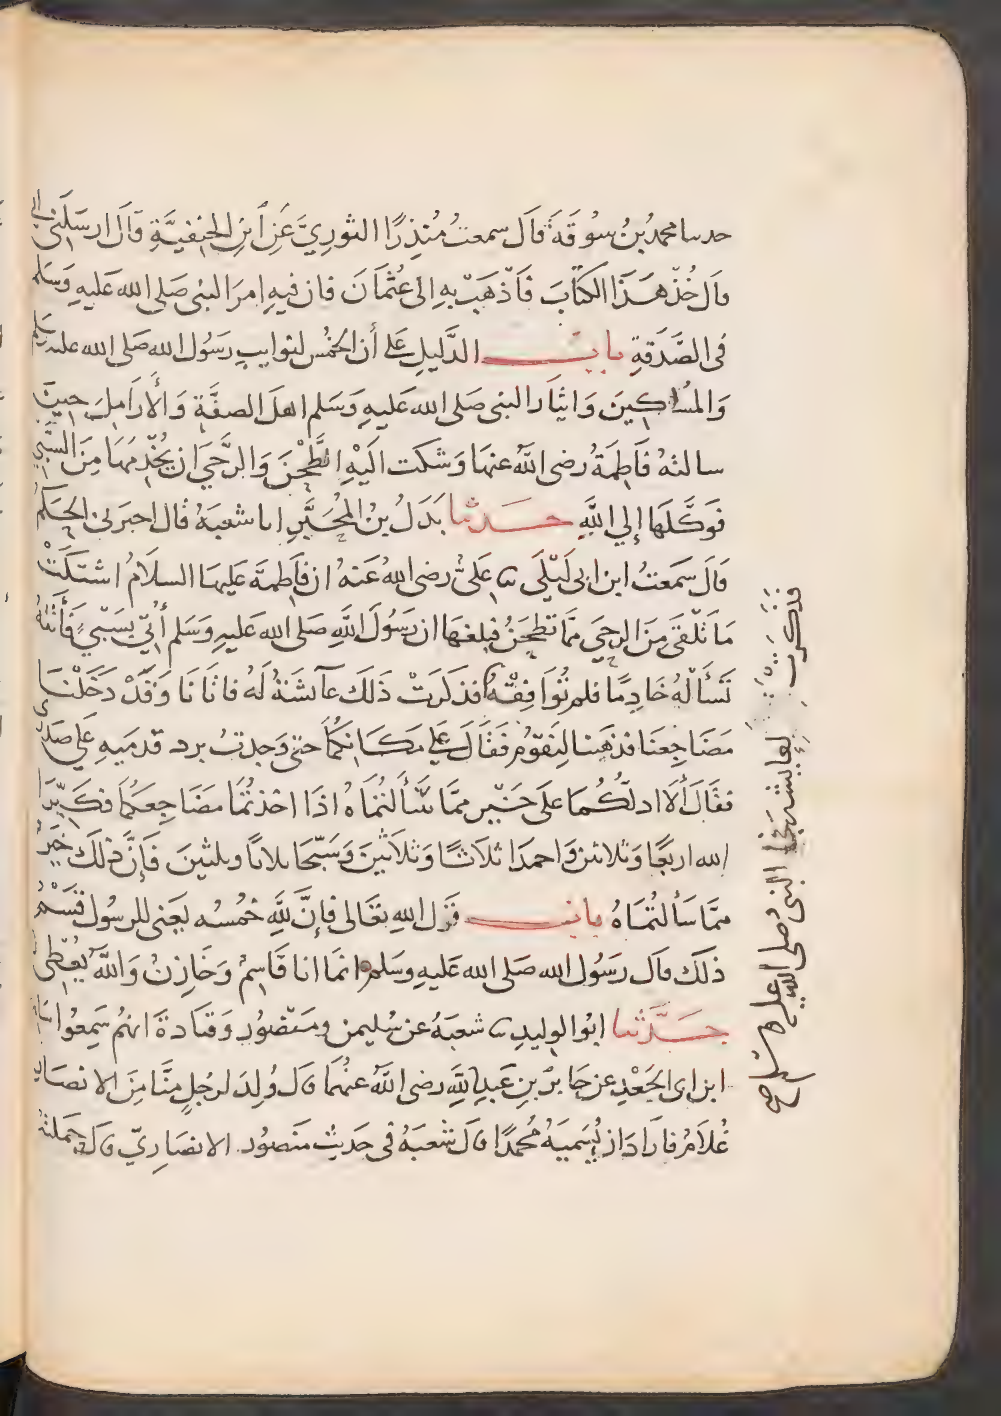 حدثنا محمد بن سُوقَةَ قال سمعتُ مُنذِرًا الثورِيَّ عَنِ ابْنِ الحنفيَّةِ قَالَ ارسَلَنى ابى
قال خُذْ هَذَا الكتَابَ فَاذْهَبْ بهِ الى عُثمَانَ فان فيهِ امرَ النبى صَلى الله عَليهِ وَسَلم
فى الصَّدَقةِ باب الدَّليلِ على أن الخمُس لنوايب رَسُول الله صَلى الله عليه وسلم
وَالمسَاكِينَ وَايثَار النبى صَلى الله عَليهِ وَسَلم اهلَ الصفَّةِ وَالأَرَامِلَ حِينَ
سالتهُ فَاطِمَةُ رضى اللهُ عنهَا وَشَكت الَيْهِ الطَّحْنَ وَالرحَى ان يُخْدِمَهَا مِنَ السَّبْيِ
فَوَكَّلَهَا إلي اللهِ حَدثنا بَدَلُ بنُ المُحَبَّرِ انا شعبَةُ قال اخبرَنى الحَكَمُ
قالَ سَمَعتُ ابن ابى لَيْلَى نا عَلىٌّ رضى اللهُ عَنهُ ان فَاطِمةَ عَليهَا السلامُ اشتكَتْ
مَا تَلْقَى مِنَ الرحَى ممَّا تَطحَنُ فبلغهَا ان رَسُولَ اللهِ صَلى الله عَليهِ وَسَلم أُتِيَ بسَبْيٍ فَأَتَتْهُ
تَسَأَلُهُ خَادِمًا فلم تُوَافِقْهُ فَذكَرَتْ ذَلكَ عَائشَةُ لَهُ فَاتَانَا وَقَدْ دَخَلْنَا
مَضَاجِعنَا فذهَبنا لِنَقُومَ فَقَالَ على مَكَانكُمَا حتى وَجدتُ برد قدميهِ عَلى صَدرى
فقَالَ أَلاَ ادلُّكُما عَلَى خَيْرٍ ممَّا سَأَلتُمَاهُ اذَا اخذتُمَا مَضَاجِعَكُمَا فَكَبِّرَا
الله اربَعًا وَثلاثين وَاحمدَا ثلَاثًا وَثلَاثِينَ وَسَبّحَا ثلاثًا وثلثينَ فَإِنَّ ذلكَ خَيرٌ
ممَّا سَأَلتُمَاهُ باب قَول اللهِ تعَالى فإِنَّ للهِ خمُسُه يَعنى للرسُول قَسْمُ
ذلكَ قال رَسُول الله صَلى الله عَليهِ وسَلم انمَا انا قَاسِمٌ وَخَازِنٌ وَاللهُ يُعْطِى
حَدَّثنا ابُوا لوليد نا شعبَةُ عن سُليمن ومَنْصُورٍ وَقتَادةَ انهُم سَمِعُوا سَالم
ابن ابى الجَعْدِ عن جَابرِ بنِ عَبدِ اللهِ رضى اللهُ عنهُمَا قال وُلِدَ لرجُلٍ منَّا مِنَ الانصَار
غُلاَمٌ فارَادَ ان يُسَميَهُ مُحَمدًا قالَ شعبَةُ فى حَديث مَنصُور الانصَارِيّ قال حَملتهُ
فذكرت
لعايشة فجا النبى صلى الله عليه وسلم
صح